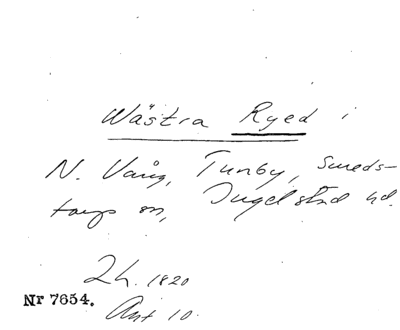 Wästra Ryed i
N. Vång, Tunby, Smeds-
torps sn, Ingelstad hd.
2 h. 1820
Nr 7654.
Avt 10.